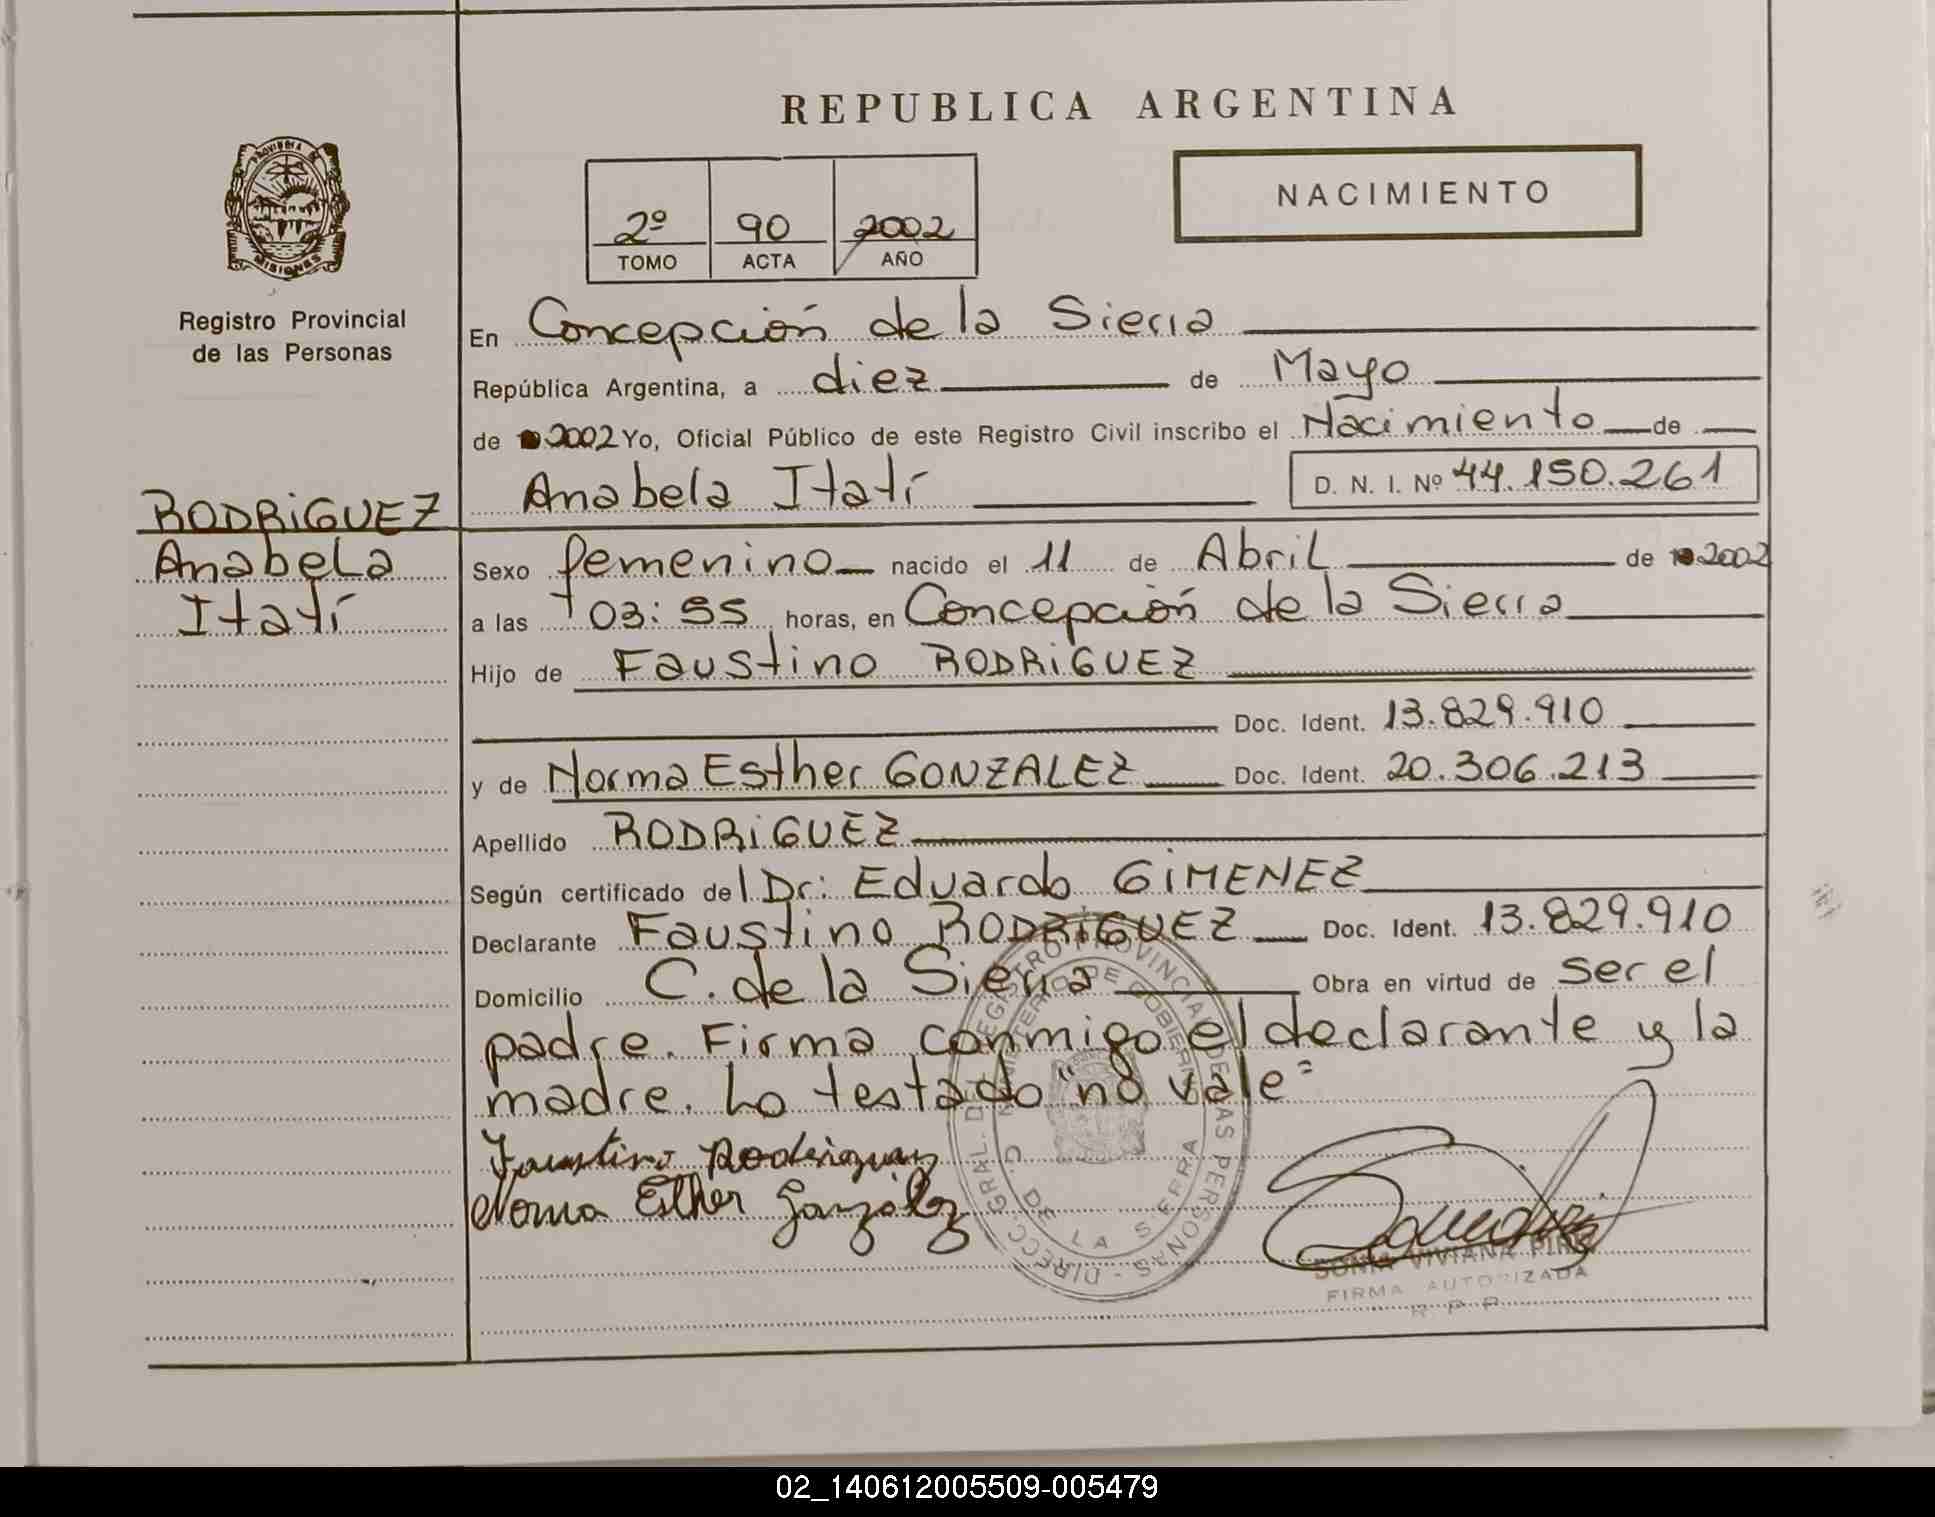 REPUBLICA ARGENTINA
PROVINCIA DE
MISIONES
Registro Provincial
de las Personas
2º 90 2002
TOMO ACTA AÑO
NACIMIENTO
En Concepción de la Sierra
República Argentina, a diez de Mayo
de 2002 Yo, Oficial Público de este Registro Civil inscribo el Nacimiento de
Anabela Itatí D. N. I. Nº 44.150.261
RODRiGUEZ
Anabela
Itatí
Sexo femenino nacido el 11 de Abril de 2002
a las 03:55 horas, en Concepción de la Sierra
Hijo de Faustino RODRiGUEZ
Doc. Ident. 13.829.910
y de Norma Esther GONZALEZ Doc. Ident. 20.306.213
Apellido RODRiGUEZ
Según certificado del Dr: Eduardo GiMENEZ
Declarante Faustino RODRiGUEZ Doc. Ident. 13.829.910
Domicilio C. de la Sierra Obra en virtud de ser el
padre. Firma conmigo el declarante y la
madre. Lo testado "no vale"
Faustino Rodriguez
Norma Esther González
DIRECC. GRAL. DE REGISTRO PROVINCIAL DE LAS PERSONAS
MINISTERIO DE GOBIERNO
C. DE LA SIERRA
SONIA VIVIANA
FIRMA AUTORIZADA
R P P
02_140612005509-005479